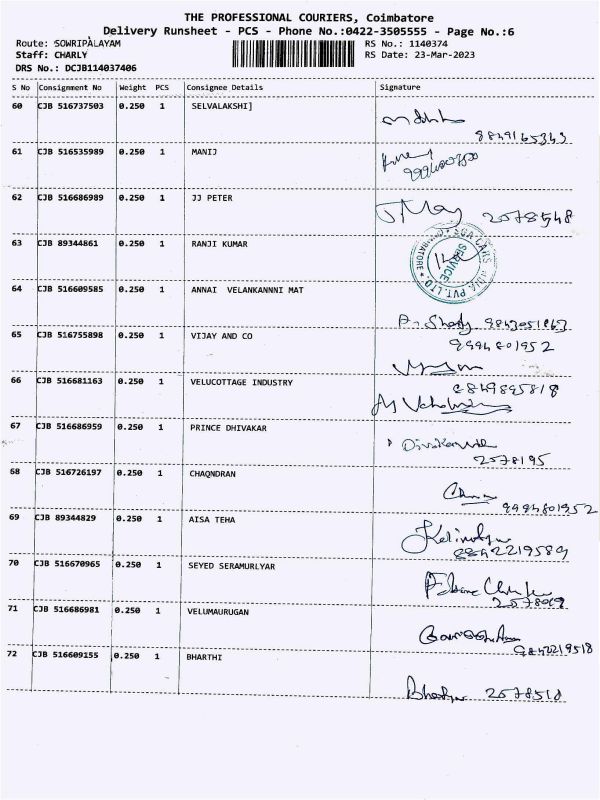 THE PROFESSIONAL COURIERS, Coimbatore
Delivery Runsheet - PCS - Phone No.:0422-3505555 - Page No.:6
Route: SOWRIPALAYAM RS No.: 1140374
Staff: CHARLY RS Date: 23-Mar-2023
DRS No.: DCJB114037406
S No Consignment No Weight PCS Consignee Details Signature
60 CJB 516737503 0.250 1 SELVALAKSHI]
8849165343
61 CJB 516535989 0.250 1 MANIJ
62 CJB 516686989 0.250 1 JJ PETER
2078548
63 CJB 89344861 0.250 1 RANJI KUMAR
SERVICE
64 CJB 516609585 0.250 1 ANNAI VELANKANNNI MAT
65 CJB 516755898 0.250 1 VIJAY AND CO
9994801952
66 CJB 516681163 0.250 1 VELUCOTTAGE INDUSTRY
67 CJB 516686959 0.250 1 PRINCE DHIVAKAR
2078195
68 CJB 516726197 0.250 1 CHAQNDRAN
9994801952
69 CJB 89344829 0.250 1 AISA TEHA
70 CJB 516670965 0.250 1 SEYED SERAMURLYAR
71 CJB 516686981 0.250 1 VELUMAURUGAN
9842219518
72 CJB 516609155 0.250 1 BHARTHI
2078518